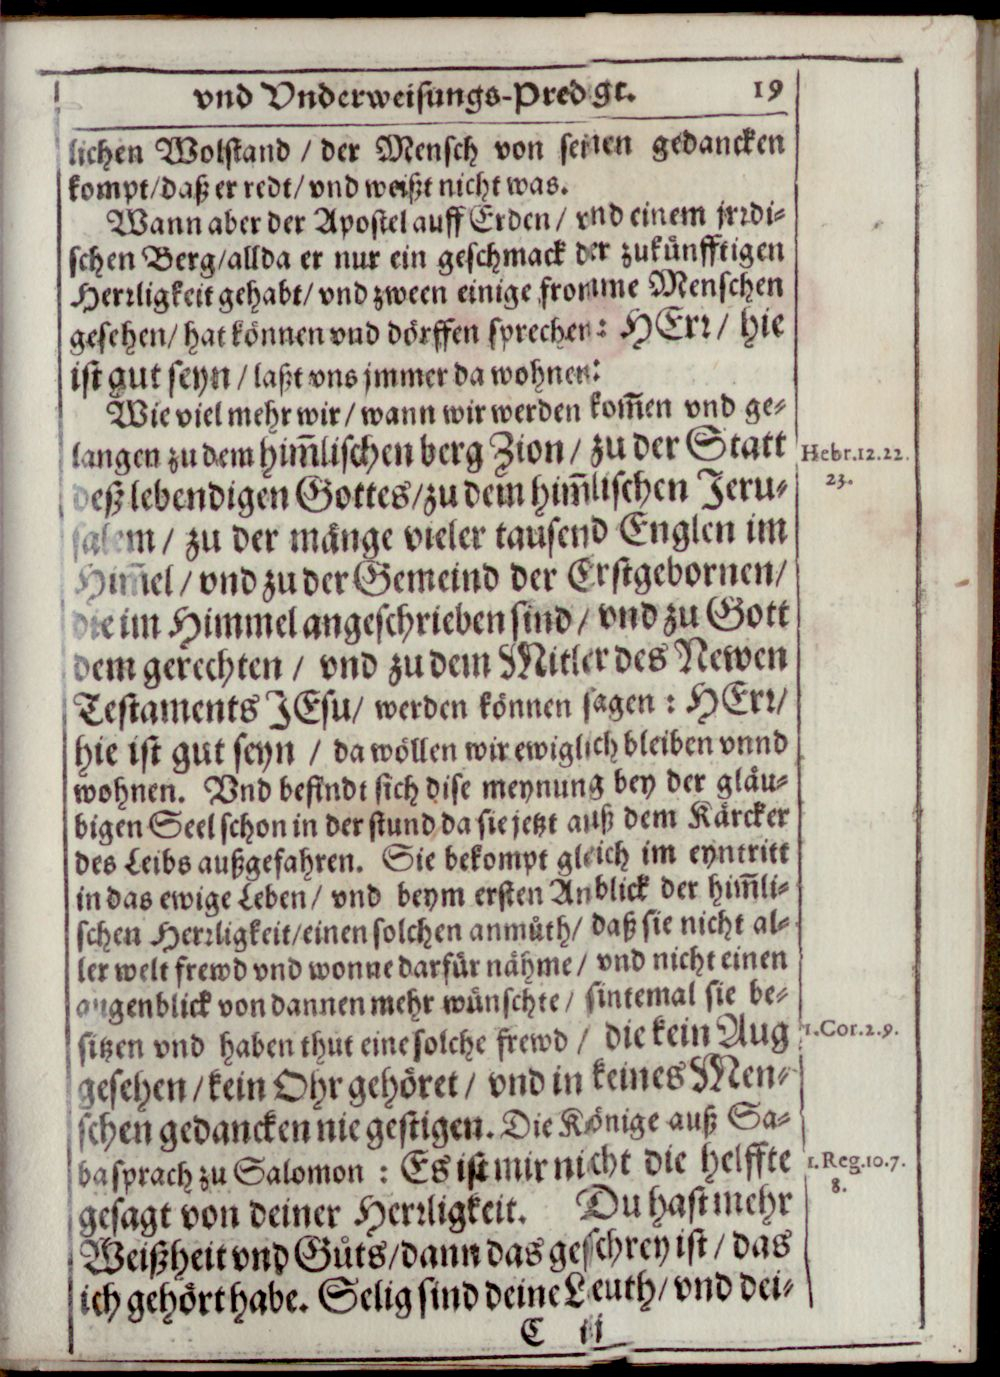 vnd Vnderweisungs-Predigt. 19
lichen Wolstand / der Mensch von seinen gedancken
kompt/daß er redt/ vnd weißt nicht was.
Wann aber der Apostel auff Erden / vnd einem jrrdi-
schen Berg/allda er nur ein geschmack der zukünfftigen
Herrligkeit gehabt/ vnd zween einige fromme Menschen
gesehen/ hat können vnd dörffen sprechen: HErr / hie
ist gut seyn / laßt vns jmmer da wohnen:
Wie viel mehr wir / wann wir werden kom̃en vnd ge-
langen zu dem him̃lischen berg Zion / zu der Statt
Hebr.12.22.
23.
deß lebendigen Gottes/zu dem him̃lischen Jeru-
salem / zu der mänge vieler tausend Englen im
Him̃el / vnd zu der Gemeind der Erstgebornen/
die im Himmel angeschrieben sind / vnd zu Gott
dem gerechten / vnd zu dem Mitler des Newen
Testaments JEsu/ werden können sagen : HErr/
hie ist gut seyn / da wöllen wir ewiglich bleiben vnnd
wohnen. Vnd befindt sich dise meynung bey der gläu-
bigen Seel schon in der stund da sie jetzt auß dem Kärcker
des Leibs außgefahren. Sie bekompt gleich im eyntritt
in das ewige Leben / vnd beym ersten Anblick der him̃li-
schen Herrligkeit/einen solchen anmůth/ daß sie nicht al-
ler welt frewd vnd wonne darfür nähme / vnd nicht einen
augenblick von dannen mehr wünschte / sintemal sie be-
sitzen vnd haben thut eine solche frewd / die kein Aug
1.Cor.2.9.
gesehen /kein Ohr gehöret / vnd in keines Men-
schen gedancken nie gestigen. Die Könige auß Sa-
ba sprach zu Salomon : Es ist mir nicht die helffte
1.Reg.10.7.
8.
gesagt von deiner Herrligkeit. Du hast mehr
Weißheit vnd Gůts/dann das geschrey ist / das
ich gehört habe. Selig sind deine Leuth/ vnd dei-
C ij